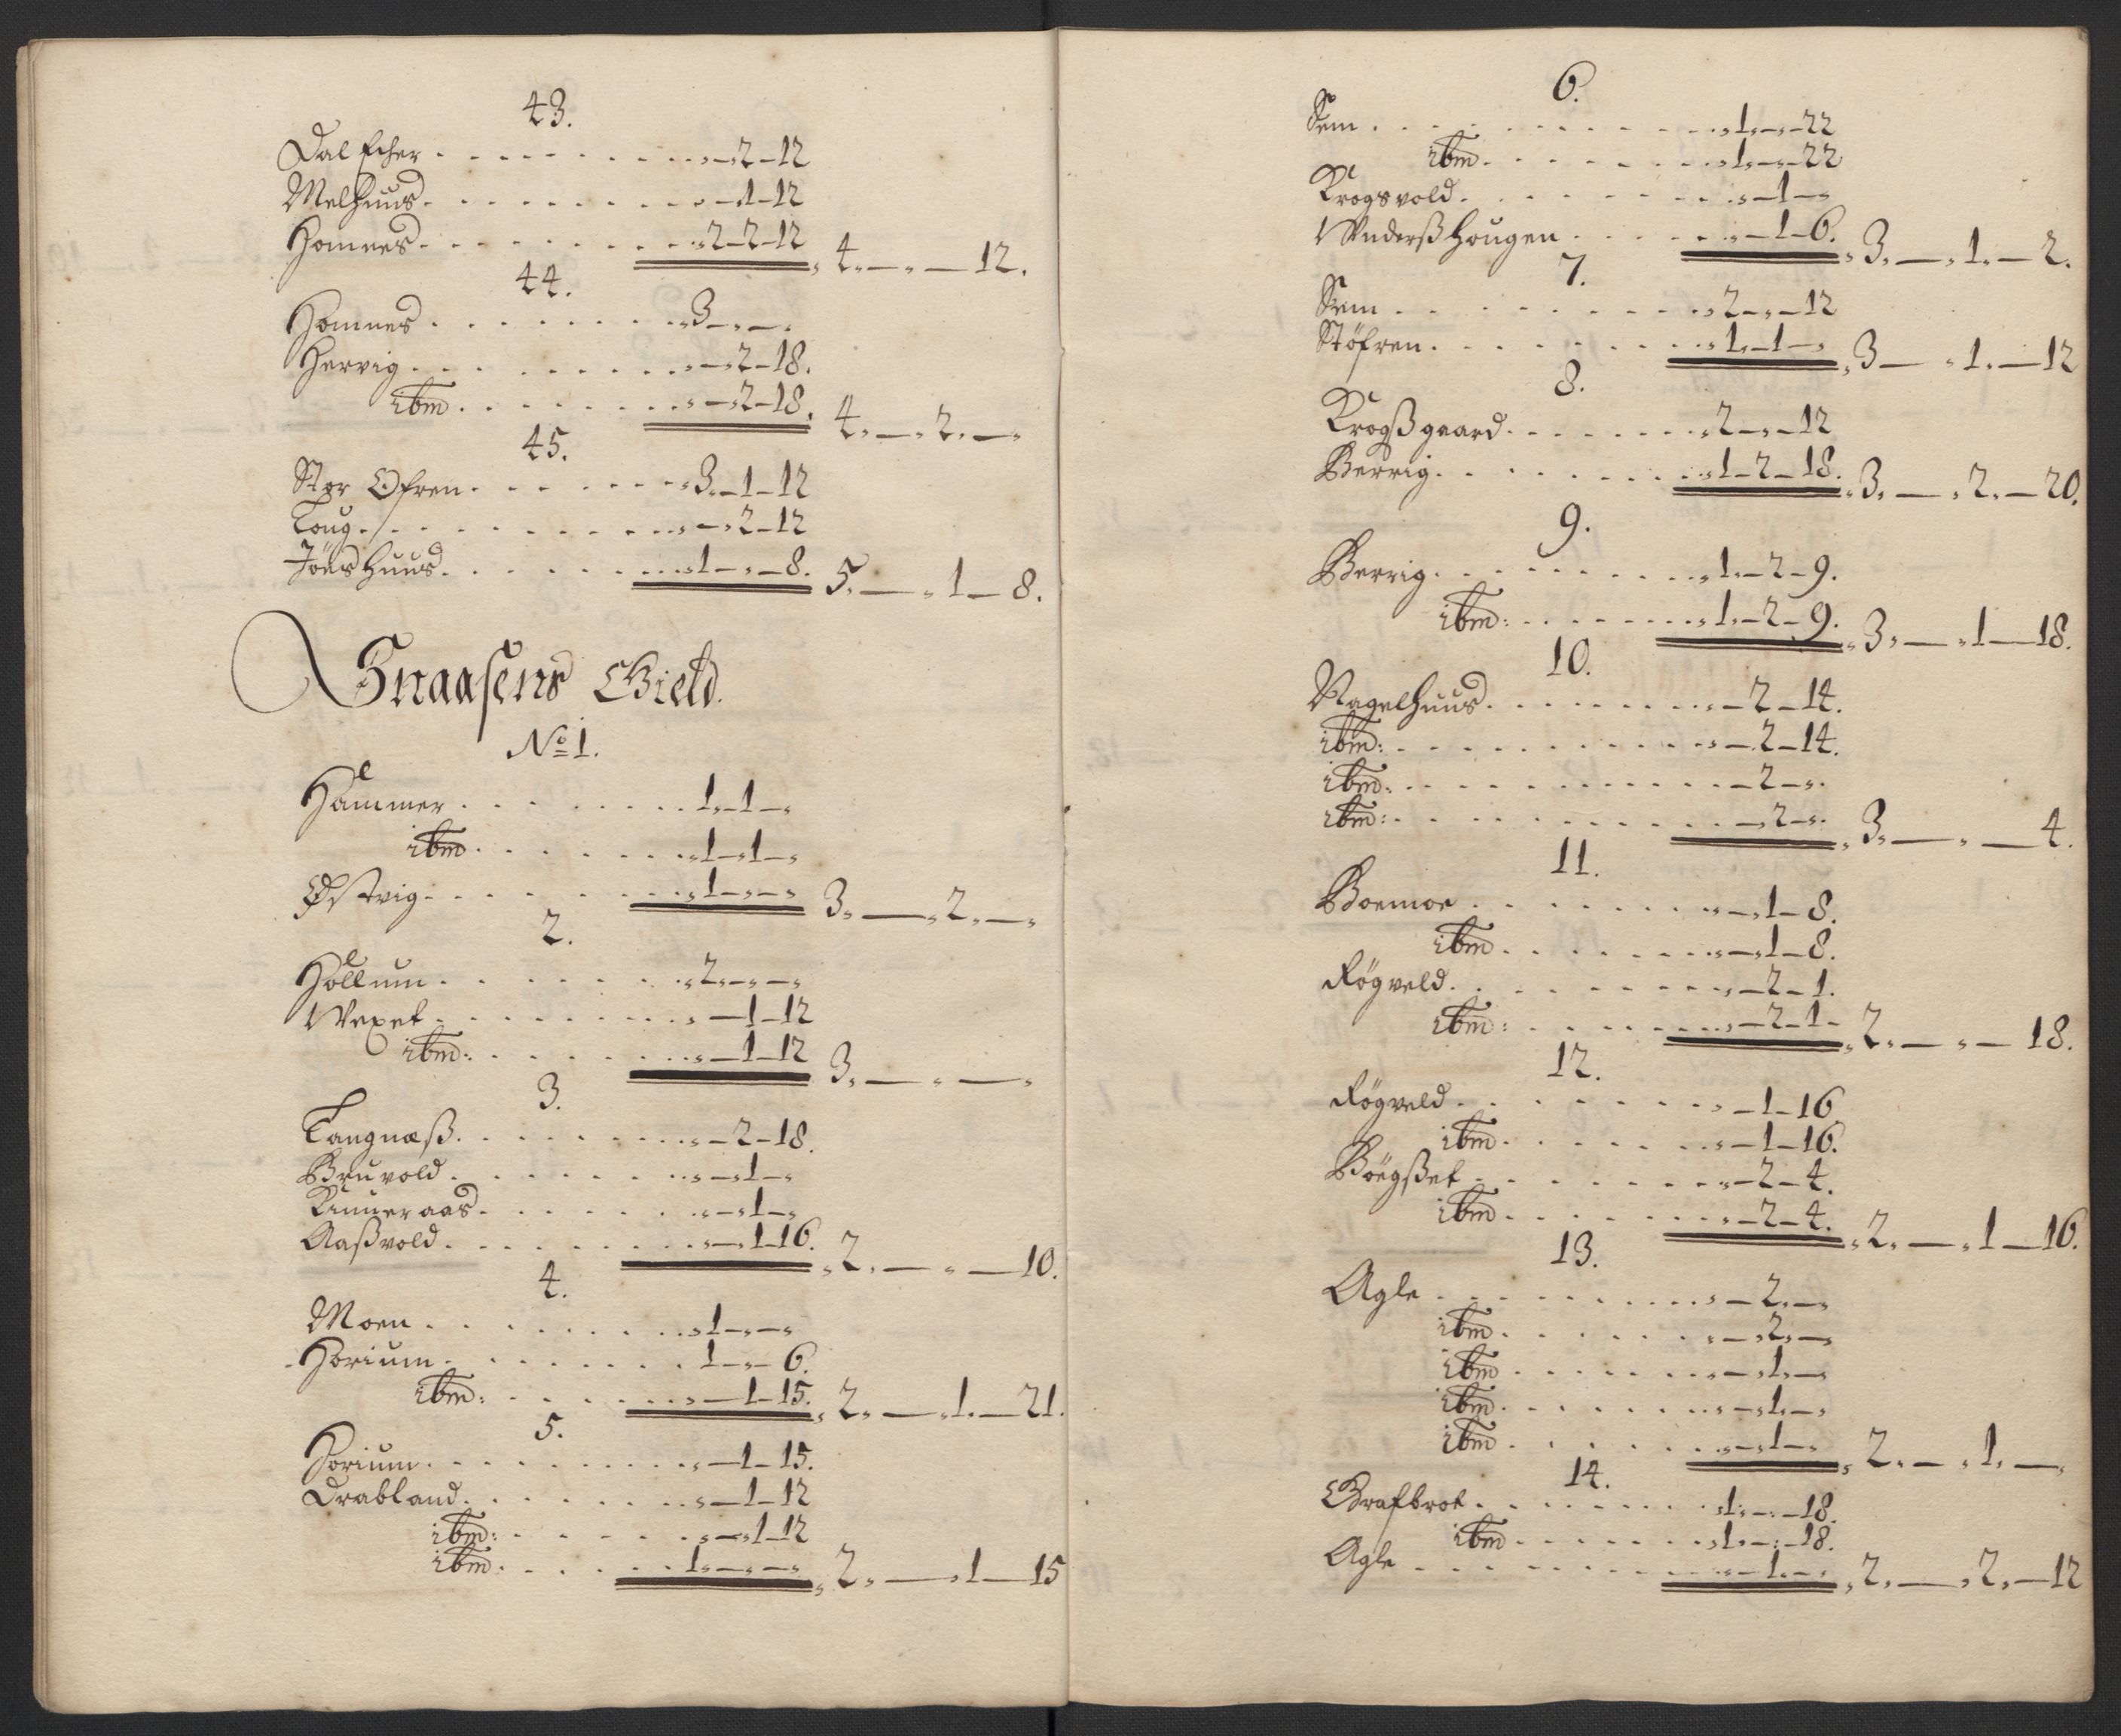 43.
Dal Echer . . . . . . . . . . „—„2—12
Melhuus . . . . . . . . . „—„1—12
Homnes . . . . . . . . „2—2—12 „4„—„—12.
44.
Homnes . . . . . . . „3—„—„
Hervig . . . . . . . . . „—„2—18.
ibm . . . . . . . . „—„2—18. 4„—„2„—„
45.
Stor Ofren . . . . . . „3„—1—12
Loug . . . . . . . . . „—„2—12
Jöns huus . . . . . . . „1—„—8. 5„—„1—8.
Snaasens Gield.
No 1.
Hammer . . . . . . . 1„—1—„
ibm . . . . . . . „1—„1—„
Østvig . . . . . . . „1—„—„ 3„—„2„—„
2.
Hollum . . . . . . . „2—„—„
Wexet . . . . . . . . „—1—12
ibm: . . . . . . . „—1—12 3„—„—„
3.
Tangnæß . . . . . . . „—2—18.
Bruvold . . . . . . . „—„1—„
Kinneraas . . . . . . „—„1—„
Aaßvold . . . . . . . „—„1—16. „2„—„—10.
4.
Moen . . . . . . . „1—„—„
Horium . . . . . . . 1—„—6.
ibm: . . . . . . „—1—15. „2„—„1„—21.
5.
Horium . . . . . . . . „—1—15.
Drabland . . . . . . . „—1—12
ibm: . . . . . . „—„1—12
ibm . . . . . . 1„—„—„ „2„—„1—15
6.
Sem . . . . . . . . . „1„—„—22
ibm . . . . . . . „1„—„—22
Krogsvold . . . . . . . „—1—„
Wuderßhougen . . . . . „—1—6. „3„—„1„—2.
7.
Sem . . . . . . . . „2—„—12
Stöfren . . . . . . . „1„—1—„ „3—„1„—12
8.
Krogßgaard . . . . . . „2—„—12
Berrig . . . . . . . „1—2—18. „3„—„2„—20.
9.
Berrig . . . . . . . „1„—2—9.
ibm: . . . . . . . „1„—2—9. „3„—„1—18.
10.
Nagelhuus . . . . . . . „—2—14.
ibm: . . . . . . . . . „—2—14.
ibm: . . . . . . . . . —2—„.
ibm: . . . . . . . . . —„2—„. „3„—„—4.
11.
Boemoe . . . . . . . „—„1—8.
ibm . . . . . . . „—„1—8.
Rögveld . . . . . . . „—2—1.
ibm: . . . . . . . „—2—1— „2„—„—18.
12.
Rögveld . . . . . . . „—1—16
ibm . . . . . . . „—1—16.
Böegßet . . . . . . . „—2—4.
ibm . . . . . . . „—2—4. „2„—„1—16.
13.
Agle . . . . . . . . „—2„—„
ibm . . . . . . . „—„2„—„
ibm . . . . . . . „—„1„—„
ibm . . . . . . . „—„1„—„
ibm . . . . . . . „—„1—„ „2„—„1„—„
14.
Grafbrot . . . . . . . „1„—„—18.
ibm . . . . . . . „1„—„—18.
Agle . . . . . . . „—1„—„ „2„—„2„—12